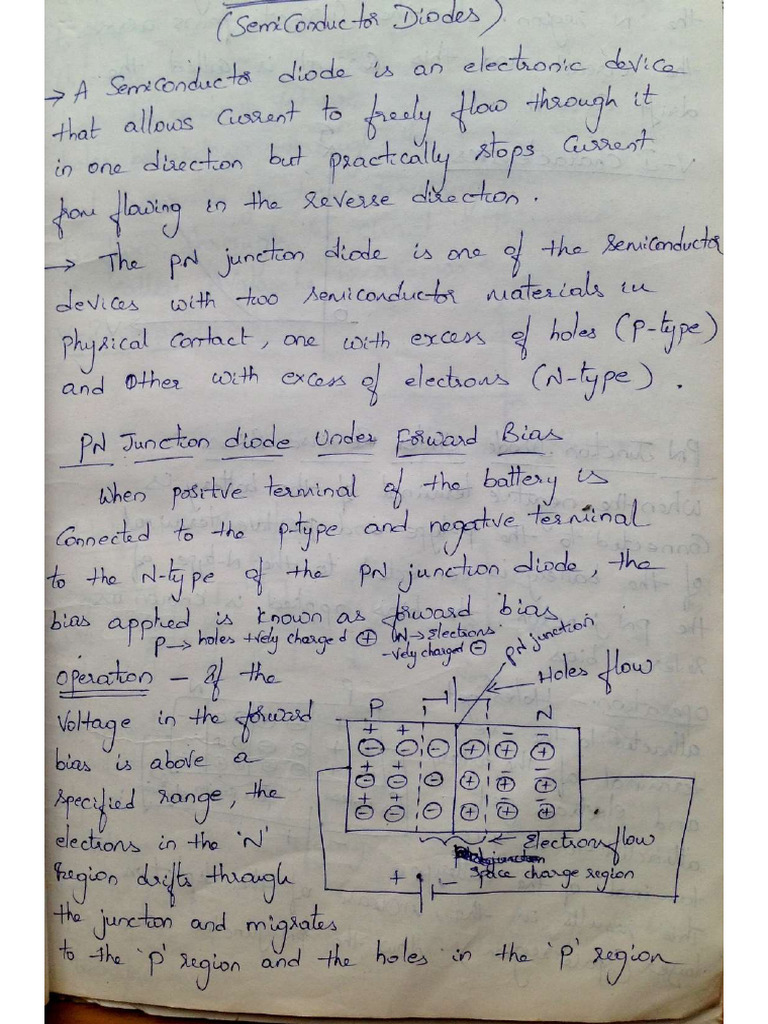 (Semiconductor Diodes)
→ A Semiconductor diode is an electronic device
that allows current to freely flow through it
in one direction but practically stops current
from flowing in the reverse direction.
→ The PN junction diode is one of the semiconductor
devices with two semiconductor materials in
physical contact, one with excess of holes (P-type)
and other with excess of electrons (N-type).
PN Junction diode Under Forward Bias
When positive terminal of the battery is
Connected to the p-type and negative terminal
to the N-type of the PN junction diode, the
bias applied is known as forward bias.
P → holes +vely charged ⊕ N → Electrons
-vely charged ⊖
PN junction
Operation - If the
Holes flow
Voltage in the forward
P N
bias is above a
specified range, the
electrons in the 'N'
Electrons flow
region drifts through
+ - space charge region
the junction and migrates
to the 'P' region and the holes in the 'P' region